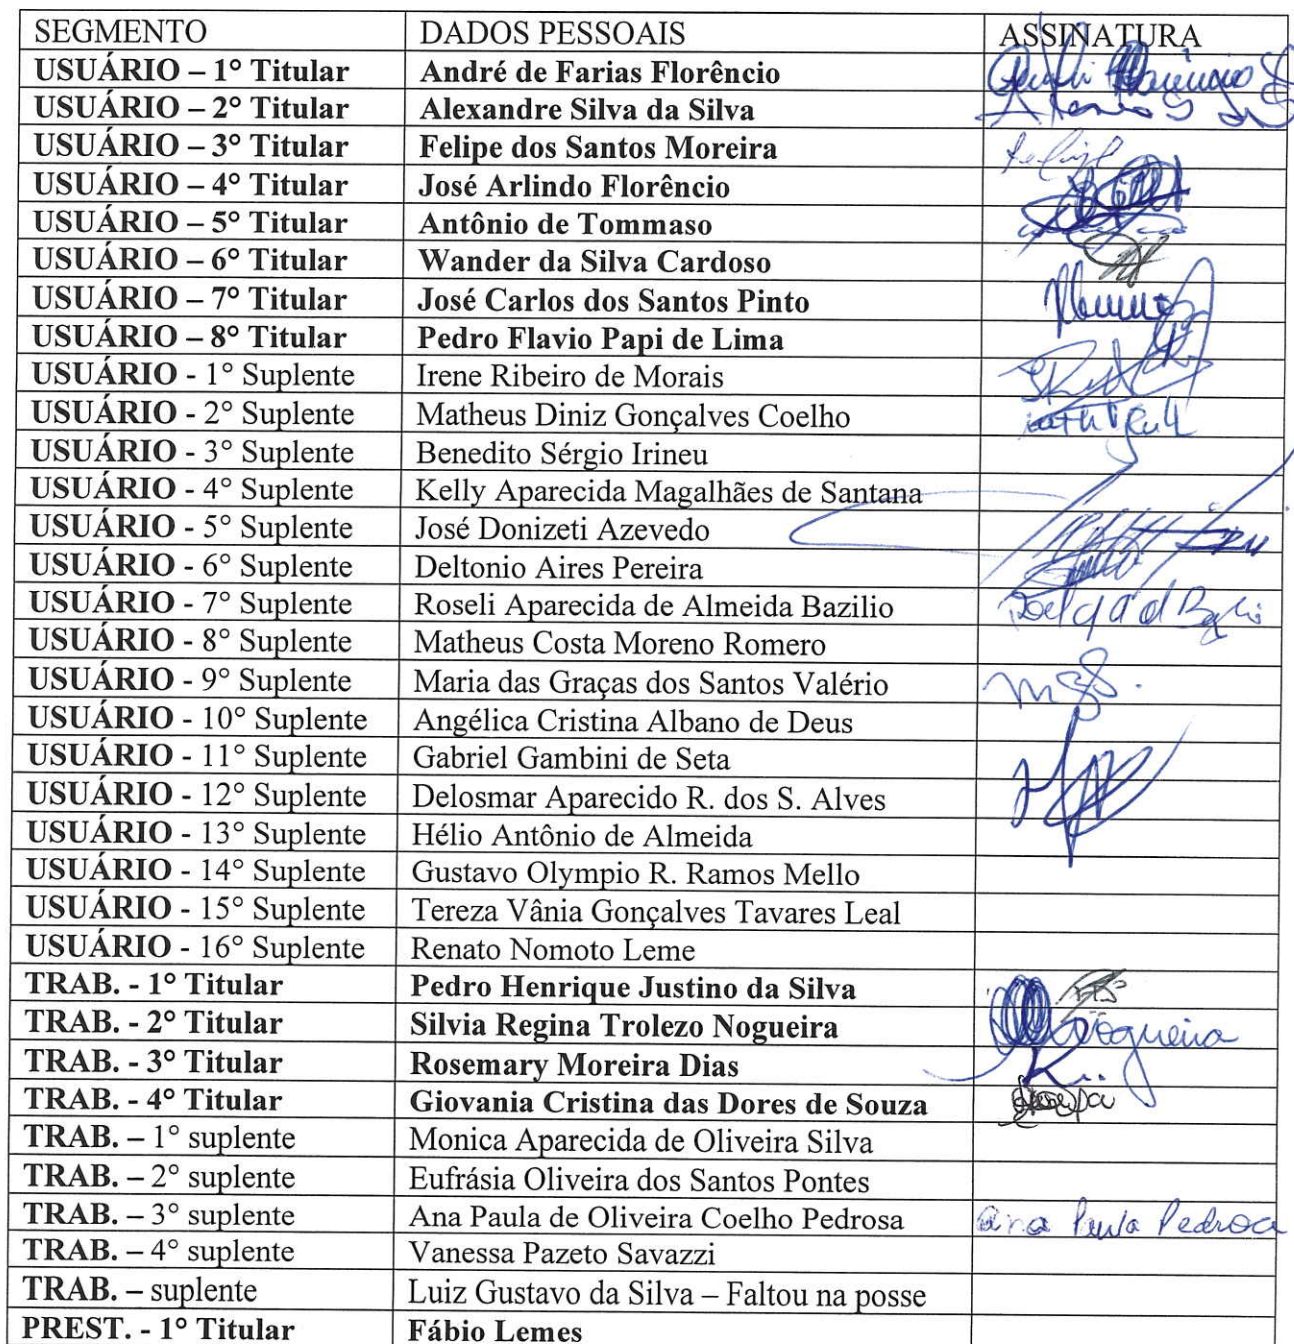 SEGMENTO DADOS PESSOAIS ASSINATURA
USUÁRIO – 1° Titular André de Farias Florêncio
USUÁRIO – 2° Titular Alexandre Silva da Silva
USUÁRIO – 3° Titular Felipe dos Santos Moreira Felipe
USUÁRIO – 4° Titular José Arlindo Florêncio
USUÁRIO – 5° Titular Antônio de Tommaso
USUÁRIO – 6° Titular Wander da Silva Cardoso
USUÁRIO – 7° Titular José Carlos dos Santos Pinto
USUÁRIO – 8° Titular Pedro Flavio Papi de Lima
USUÁRIO - 1° Suplente Irene Ribeiro de Morais
USUÁRIO - 2° Suplente Matheus Diniz Gonçalves Coelho
USUÁRIO - 3° Suplente Benedito Sérgio Irineu
USUÁRIO - 4° Suplente Kelly Aparecida Magalhães de Santana
USUÁRIO - 5° Suplente José Donizeti Azevedo
USUÁRIO - 6° Suplente Deltonio Aires Pereira
USUÁRIO - 7° Suplente Roseli Aparecida de Almeida Bazilio
USUÁRIO - 8° Suplente Matheus Costa Moreno Romero
USUÁRIO - 9° Suplente Maria das Graças dos Santos Valério
USUÁRIO - 10° Suplente Angélica Cristina Albano de Deus
USUÁRIO - 11° Suplente Gabriel Gambini de Seta
USUÁRIO - 12° Suplente Delosmar Aparecido R. dos S. Alves
USUÁRIO - 13° Suplente Hélio Antônio de Almeida
USUÁRIO - 14° Suplente Gustavo Olympio R. Ramos Mello
USUÁRIO - 15° Suplente Tereza Vânia Gonçalves Tavares Leal
USUÁRIO - 16° Suplente Renato Nomoto Leme
TRAB. - 1° Titular Pedro Henrique Justino da Silva
TRAB. - 2° Titular Silvia Regina Trolezo Nogueira Nogueira
TRAB. - 3° Titular Rosemary Moreira Dias
TRAB. - 4° Titular Giovania Cristina das Dores de Souza
TRAB. – 1° suplente Monica Aparecida de Oliveira Silva
TRAB. – 2° suplente Eufrásia Oliveira dos Santos Pontes
TRAB. – 3° suplente Ana Paula de Oliveira Coelho Pedrosa Ana Paula Pedrosa
TRAB. – 4° suplente Vanessa Pazeto Savazzi
TRAB. – suplente Luiz Gustavo da Silva – Faltou na posse
PREST. - 1° Titular Fábio Lemes